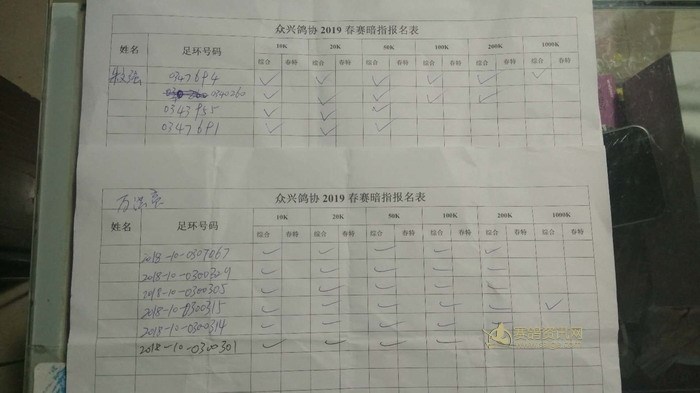 众兴鸽协 2019 春赛暗指报名表
姓名 足环号码 10K 20K 50K 100K 200K 1000K
综合 春特 综合 春特 综合 春特 综合 春特 综合 春特 综合 春特
0347694 ✓ ✓ ✓ ✓ ✓ ✓
0340260 ✓ ✓ ✓ ✓ ✓
0343955 ✓ ✓ ✓
0347691 ✓ ✓ ✓
众兴鸽协 2019 春赛暗指报名表
姓名 足环号码 10K 20K 50K 100K 200K 1000K
综合 春特 综合 春特 综合 春特 综合 春特 综合 春特 综合 春特
2018-10-0307067 ✓ ✓ ✓ ✓ ✓
2018-10-0300324 ✓ ✓ ✓ ✓ ✓
2018-10-0300305 ✓ ✓ ✓ ✓ ✓
2018-10-0300315 ✓ ✓ ✓ ✓ ✓ ✓
2018-10-0300314 ✓ ✓ ✓ ✓ ✓
2018-10-0300301 ✓ ✓ ✓ ✓ ✓
赛鸽资讯网